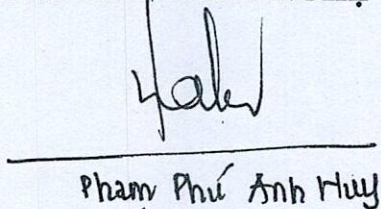 Phạm Phú Anh Huy